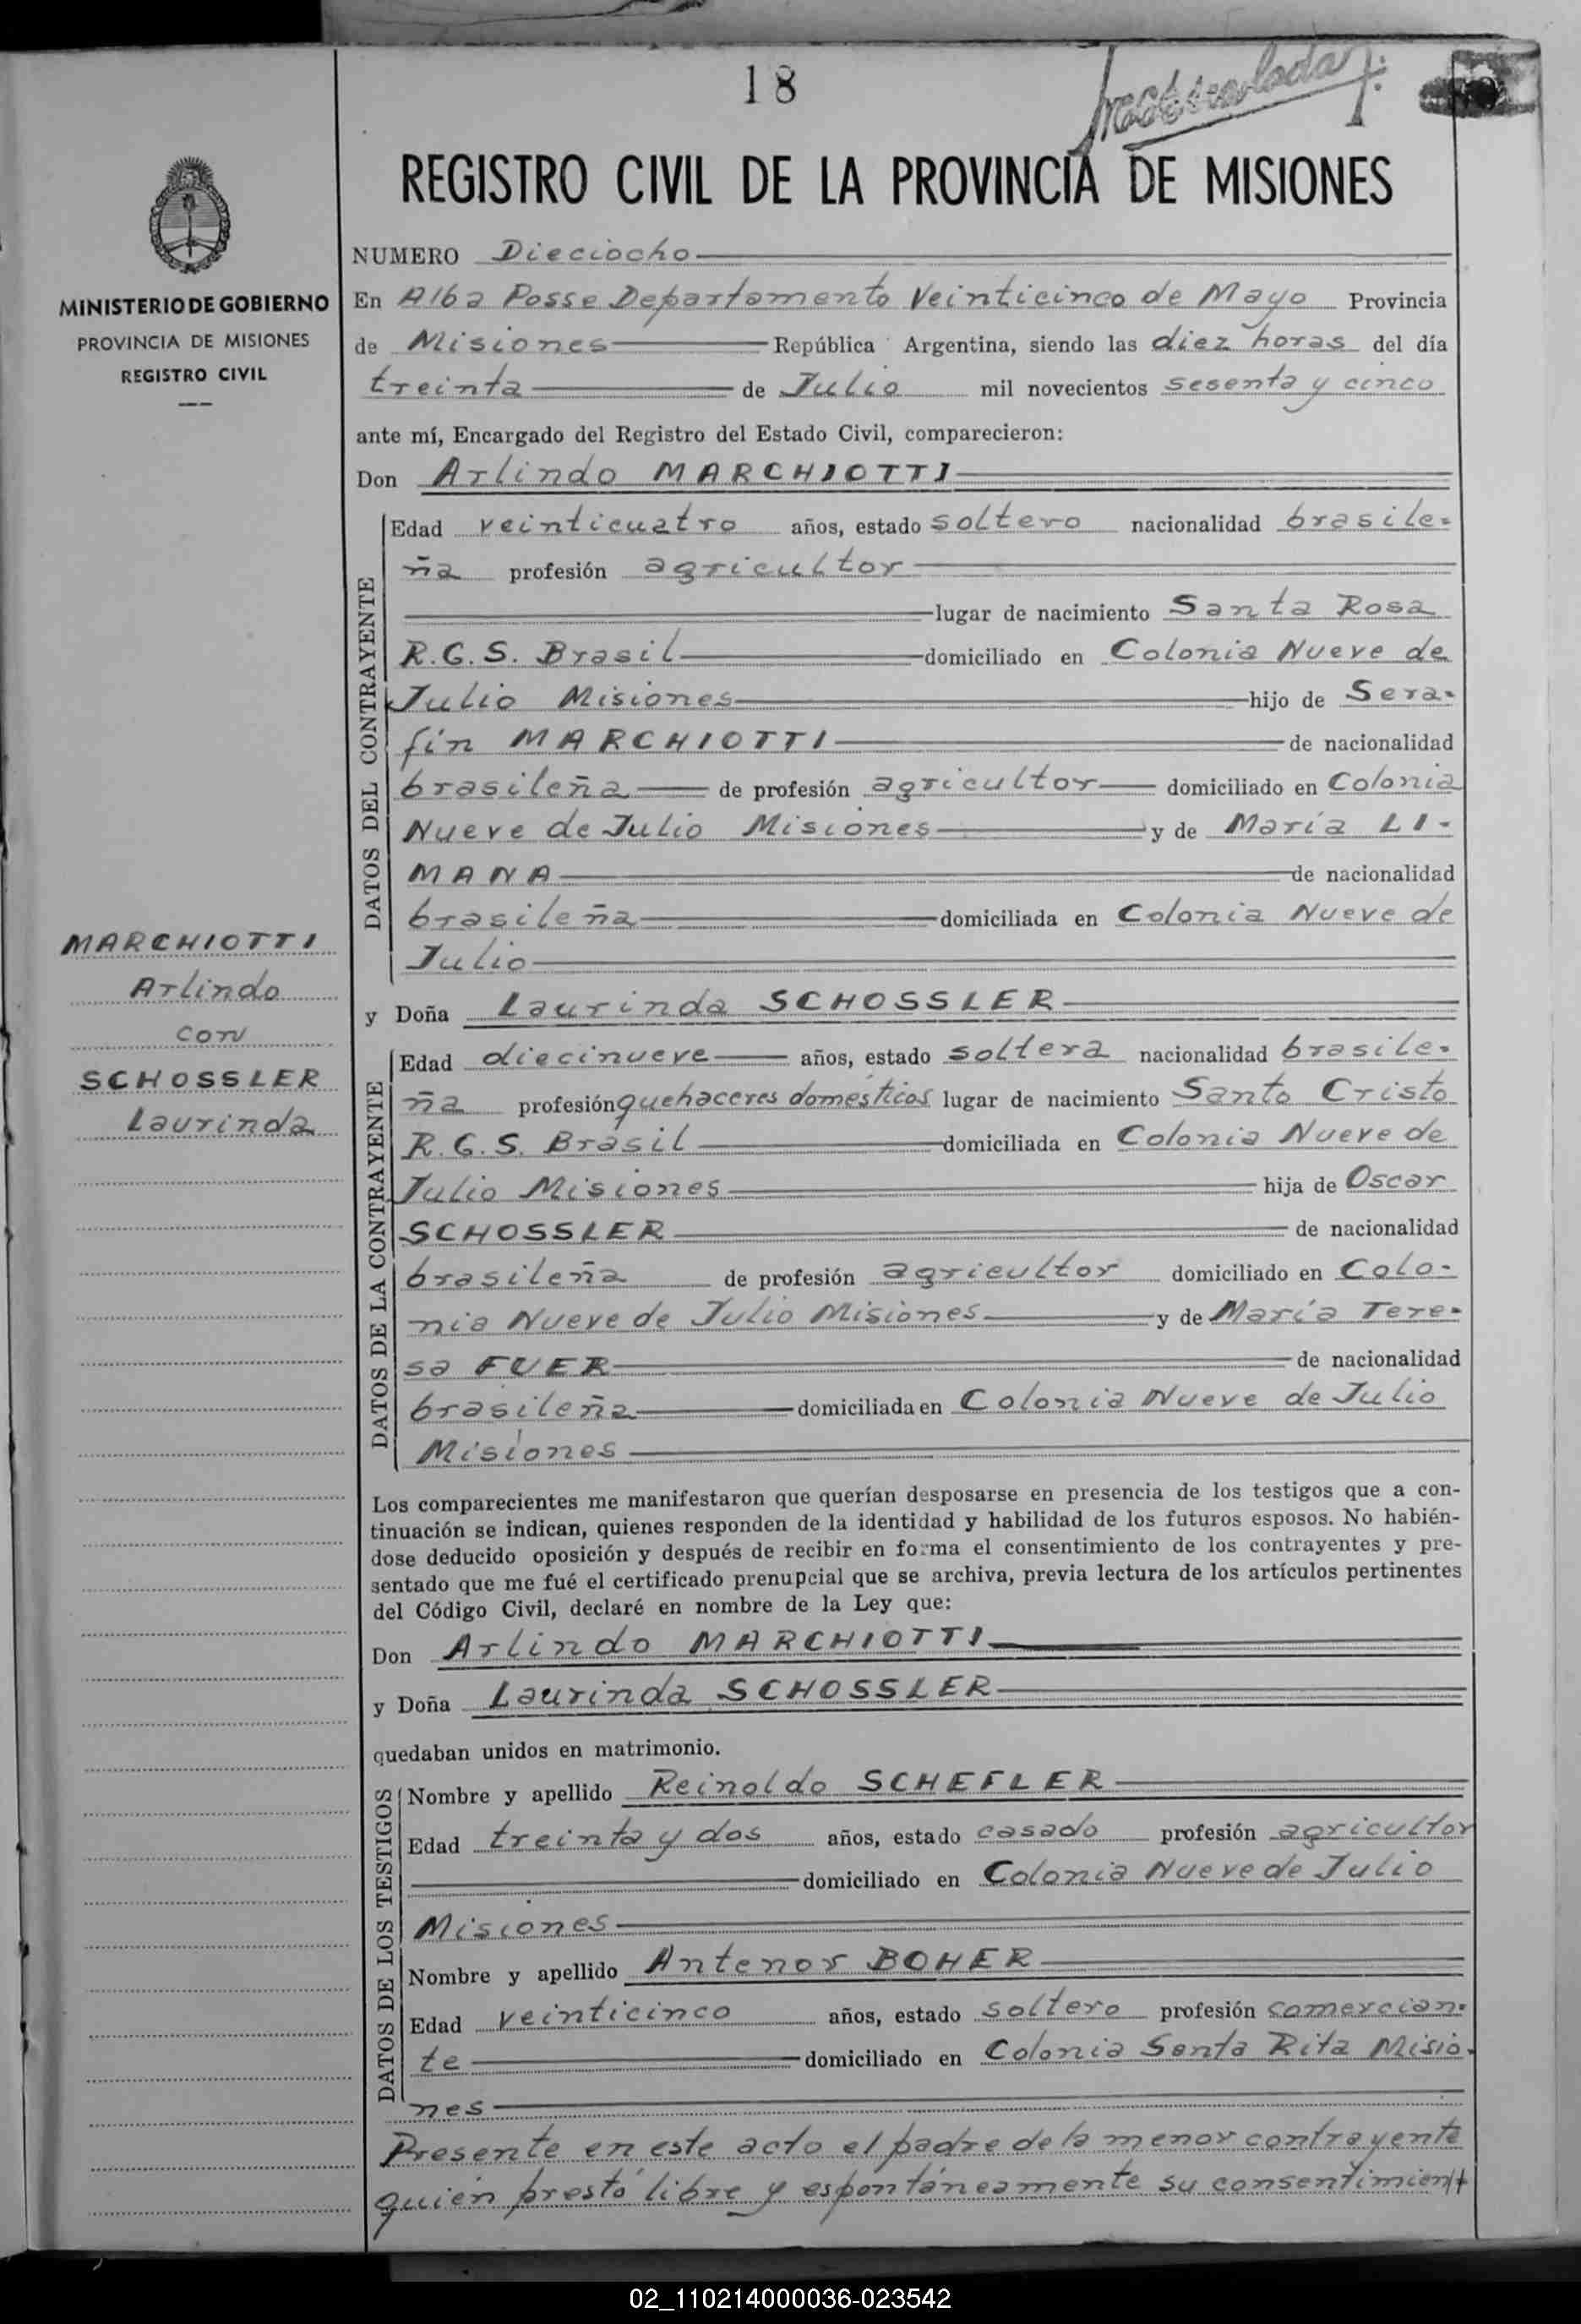 18
REGISTRO CIVIL DE LA PROVINCIA DE MISIONES
MINISTERIO DE GOBIERNO
PROVINCIA DE MISIONES
REGISTRO CIVIL
MARCHIOTTI
Arlindo
con
SCHOSSLER
Laurinda
NUMERO Dieciocho
En Alba Posse Departamento Veinticinco de Mayo Provincia
de Misiones República Argentina, siendo las diez horas del día
treinta de Julio mil novecientos sesenta y cinco
ante mí, Encargado del Registro del Estado Civil, comparecieron:
Don Arlindo MARCHIOTTI
DATOS DEL CONTRAYENTE
Edad veinticuatro años, estado soltero nacionalidad brasile-
ña profesión agricultor
lugar de nacimiento Santa Rosa
R.G.S. Brasil domiciliado en Colonia Nueve de
Julio Misiones hijo de Sera-
fin MARCHIOTTI de nacionalidad
brasileña de profesión agricultor domiciliado en Colonia
Nueve de Julio Misiones y de María LI-
MANA de nacionalidad
brasileña domiciliada en Colonia Nueve de
Julio
y Doña Laurinda SCHOSSLER
DATOS DE LA CONTRAYENTE
Edad diecinueve años, estado soltera nacionalidad brasile-
ña profesión quehaceres domésticos lugar de nacimiento Santo Cristo
R.G.S. Brasil domiciliada en Colonia Nueve de
Julio Misiones hija de Oscar
SCHOSSLER de nacionalidad
brasileña de profesión agricultor domiciliado en Colo-
nia Nueve de Julio Misiones y de María Tere-
sa FUER de nacionalidad
brasileña domiciliada en Colonia Nueve de Julio
Misiones
Los comparecientes me manifestaron que querían desposarse en presencia de los testigos que a con-
tinuación se indican, quienes responden de la identidad y habilidad de los futuros esposos. No habién-
dose deducido oposición y después de recibir en forma el consentimiento de los contrayentes y pre-
sentado que me fué el certificado prenupcial que se archiva, previa lectura de los artículos pertinentes
del Código Civil, declaré en nombre de la Ley que:
Don Arlindo MARCHIOTTI
y Doña Laurinda SCHOSSLER
quedaban unidos en matrimonio.
DATOS DE LOS TESTIGOS
Nombre y apellido Reinoldo SCHEFLER
Edad treinta y dos años, estado casado profesión agricultor
domiciliado en Colonia Nueve de Julio
Misiones
Nombre y apellido Antenor BOHER
Edad veinticinco años, estado soltero profesión comercian-
te domiciliado en Colonia Santa Rita Misio-
nes
Presente en este acto el padre de la menor contrayente
quien prestó libre y espontáneamente su consentimient
02_110214000036-023542